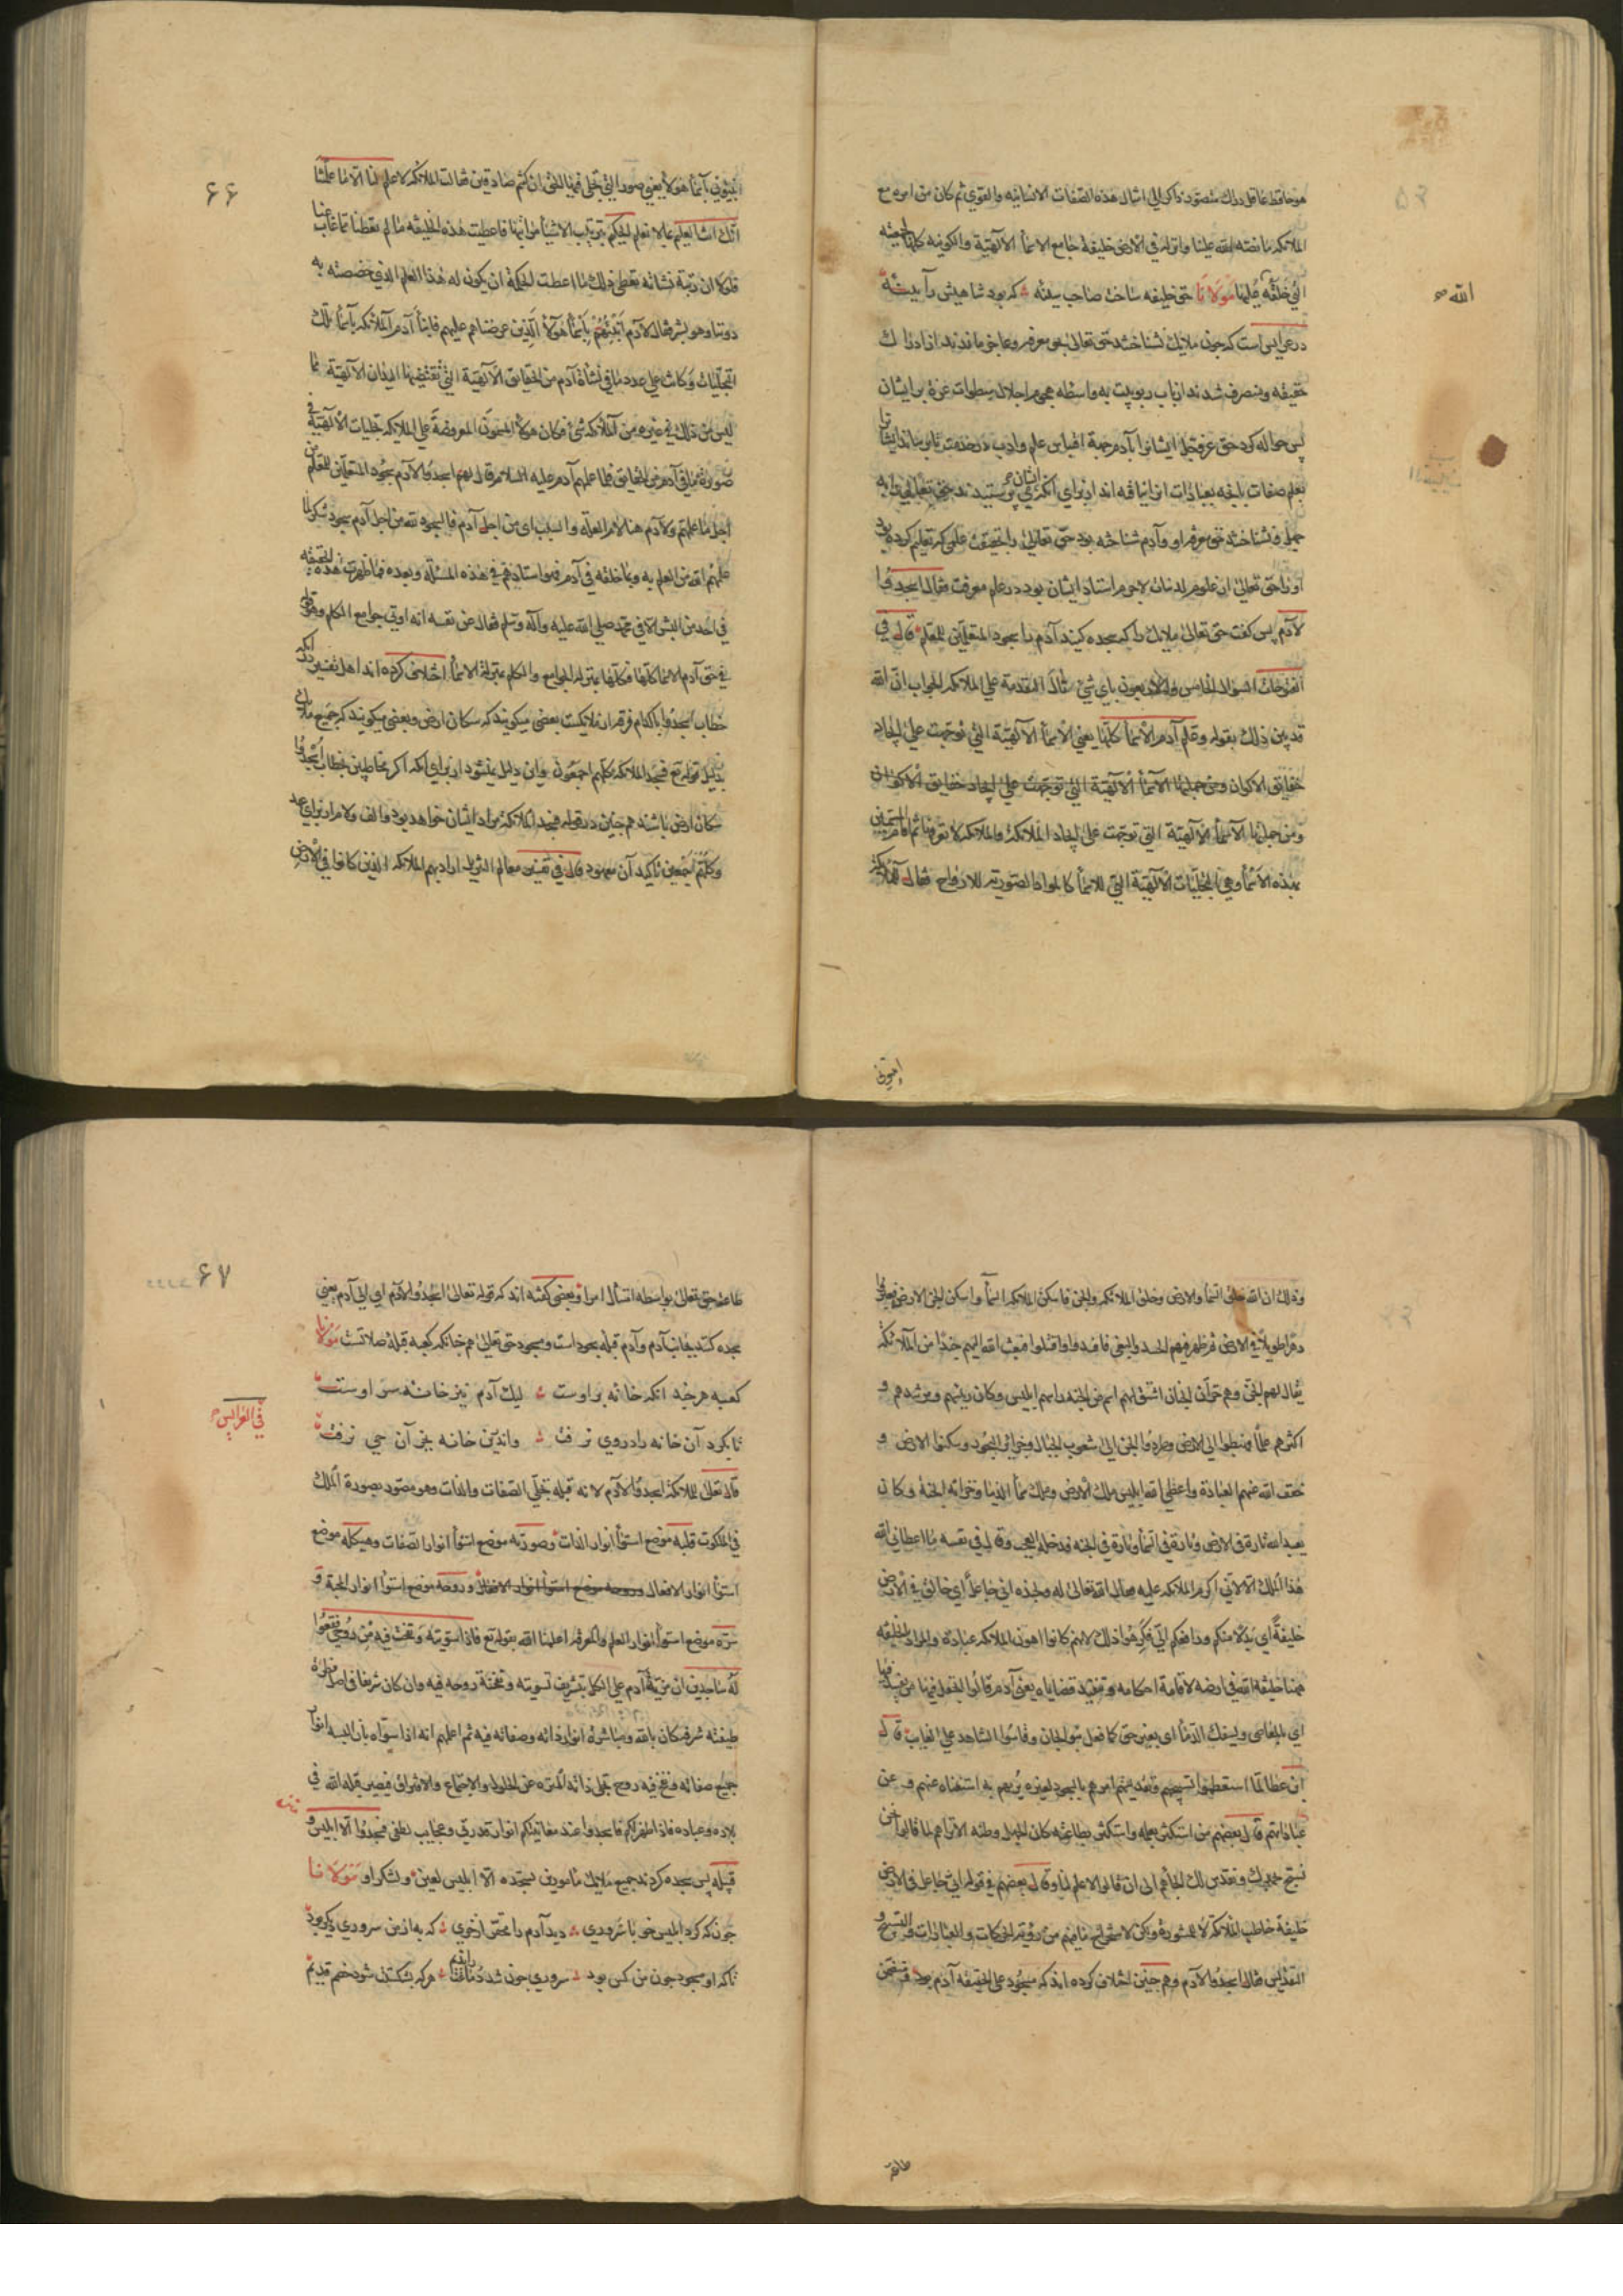 هو حافظ عاقل دراك متصور ذاكر الى امثال هذه الصفات الانسانيه والقوى ثم كان من امره مع
الملائكه ما قصه الله علينا وانزله في الارض خليفة جامع الاسماء الالهية والكونيه كلها
التي خلقه عليها مولانا حق خليفه ساخت صاحب سينه كه بود شاهيش را آيينه
الله
درعرايس است كه چون ملايك نشناختند حق تعالى بحق معرفه وعاجز ماندند از ادراك
حقيقه ومنصرف شدند از باب ربوبيت به واسطه هجوم اجلال سطوات عزة بر ايشان
پس حواله كرد حق عز وجل ايشانرا بآدم جهة اقتباس علم وادب در خدمت تا برساند ايشان
بعلم صفات بآنچه بعبادات آن را نيافته اند از براى آنكه ايشان نپرستيدند حق تعالى را به
جهل ونشناختند حق معرفه او وآدم شناخته بود حق تعالى را بحقيقت علمى كه تعليم كرده بود
او را حق تعالى از علوم لدنيات لاجرم استاد ايشان بود در علم معرفت فقال اسجدوا
لآدم پس كفت حق تعالى ملايك را كه سجده كنيد آدم را سجود المتعلمين للمعلم قال في
الفتوحات السؤال الخامس والاربعون باي شئ نال المقدمة على الملائكه الجواب ان الله
قد بين ذلك بقوله وعلم آدم الاسماء كلها يعني الاسماء الالهية التي توجهت على ايجاد
حقايق الاكوان ومن جملتها الاسماء الالهية التي توجهت على ايجاد حقايق الاكوان
ومن جملتها الاسماء الالهية التي توجهت على ايجاد الملائكة والملائكه لا تعرفها ثم اقام المسمين
بهذه الاسماء وهي التجليات الالهية التي للاسماء كالمواد الصوريه للارواح فقال للملائكة
انبئوني
۶۶
انبئوني باسماء هؤلاء يعني صور التي تجلى فيها الحق ان كنتم صادقين قالت الملائكه لا علم لنا الا ما علمتنا
انك انت العليم بما لا نعلم الحكيم بترتيب الاشياء مراتبها فاعطيت هذه الخليفه ما لم تعطنا مما غاب عنا
فلولا ان رتبة نشاته تعطى ذلك ما اعطت الحكمة ان يكون له هذا العلم الذي خصصته به
دوننا وهو بشر فقال لآدم انبئهم باسماء هؤلاء الذين عرضناهم عليهم فانبأ آدم الملائكه باسماء تلك
التجليات وكانت على عدد ما في نشأة آدم من الحقايق الالهية التي تقتضيها اليدان الالهية مما
ليس من ذلك في غيره من الملائكه شئ فكان هؤلاء المسمون المعروضة على الملايكه تجليات الالهية في
صورة ما في آدم من الحقايق فلما علمهم آدم عليه السلام قال لهم اسجدوا لآدم سجود المتعلمين للمعلم من
اجل ما علمهم ولآدم هنا لام العلة والسبب اى من اجل آدم فالسجود لله من اجل آدم سجود شكر لما
علمهم الله من العلم به وبما خلقه في آدم فهو استادهم في هذه المسئلة وبعده فما ظهرت هذه الحقيقه
في احد من البشر الا في محمد صلى الله عليه وآله وسلم فقال عن نفسه انه اوتي جوامع الكلم وهو قوله
في حق آدم الاسماء كلها فكلها بمنزلة الجوامع والكلم بمنزلة الاسماء اختلاف كرده اند اهل تفسير در آنكه
خطاب اسجدوا با كدام فرقه از ملايكست بعضى ميكويند كه سكان ارض وبعضى ميكويند كه جميع ملايك
بدليل قوله تع فسجد الملائكه كلهم اجمعون واين دليل نميشود از براي آنكه اكر مخاطبين بخطاب اسجدوا
سكان ارض باشند هم چنين در قوله فسجد الملائكة مراد ايشان خواهد بود والف ولام از براى عهد
وكلهم اجمعين تاكيد آن معهود قال في تفسير معالم التنزيل اراد بهم الملائكه الذين كانوا في الارض
وذلك ان الله خلق السماء والارض وخلق الملائكه والجن فاسكن الملائكه السماء واسكن الجن الارض فعبدوا
دهرا طويلا في الارض ثم ظهر فيهم الحسد والبغي فافسدوا واقتتلوا فبعث الله اليهم جندا من الملائكه
يقال لهم الجن وهم خزان الجنان اشتق لهم اسم من الجنه راسهم ابليس وكان رئيسهم ومرشدهم و
اكثرهم علما فهبطوا الى الارض وطردوا الجن الى شعوب الجبال وجزائر البحور وسكنوا الارض و
خفف الله عنهم العبادة واعطى الله ابليس ملك الارض وملك سماء الدنيا وخزانة الجنة وكان
يعبد الله تارة في الارض وتارة في السماء وتارة في الجنه فدخله العجب وقال في نفسه ما اعطاني الله
هذا الملك الا لاني اكرم الملائكه عليه فقال الله تعالى له ولجنده اني جاعل اي خالق في الارض
خليفة اي بدلا منكم ورافعكم الي فكرهوا ذلك لانهم كانوا اهون الملائكه عبادة والمراد بالخليفه
ههنا خليفة الله في ارضه لاقامة احكامه وتنفيذ قضاياه يعنى آدم قالوا اتجعل فيها من يفسد فيها
اي بالمعاصي ويسفك الدماء اى بغير حق كما فعل بنو الجان وقاسوا الشاهد على الغايب قال
ابن عطا لما استعظموا تسبيحهم وتقديسهم امرهم بالسجود لغيره يريهم به استغناه عنهم وعن
عباداتهم قال بعضهم من استكثر بعمله واستكثر بطاعته كان الجهل وطنه الا تراهم لما قالوا نحن
نسبح بحمدك ونقدس لك الجاهم الى ان قالوا لا علم لنا وقال بعضهم في قوله اني جاعل في الارض
خليفة خاطب الملائكة لا للمشورة ولكن لاستخراج ما فيهم من رؤية الحركات والعبادات والتسبيح و
التقديس فقال اسجدوا لآدم وهم چنين اختلاف كرده اند كه مسجود على الحقيقه آدم بود
طاعة
۶۷
طاعة حق تعالى بواسطه امتثال امر او وبعضى كفته اند كه قوله تعالى اسجدوا لآدم اي الى آدم يعني
سجده كنند بجانب آدم وآدم قبله سجود است ومسجود حق تعالى هم چنانكه كعبه قبلة صلاتست مولانا
كعبه هر چند انكه خانه بر اوست ليك آدم نيز خانه سر اوست
في العرايس
تا بكرد آن خانه را در وى نرفت واندين خانه بجز آن حى نرفت
قال تعالى للملائكة اسجدوا لآدم لانه قبلة تجلي الصفات والذات وهو مصور بصورة الملك
في الملكوت قلبه موضع استواء انوار الذات وصورته موضع استواء انوار الصفات وهيكله موضع
استواء انوار الافعال وروحه موضع استواء انوار الافعال وروحه موضع استواء انوار المحبة و
سره موضع استواء انوار العلم والمعرفه اعلمنا الله بقوله تع فاذا سويته ونفخت فيه من روحي فقعوا
له ساجدين ان مزية آدم على الكل بتشريف تسويته ونفخة روحه فيه وان كان شريفا في اصل فطرة
طينته شرفه كان بالله ومباشرة انوار ذاته وصفاته فيه ثم اعلمهم انه اذا سواه بان البسه انوار
جميع صفاته ونفخ فيه روح تجلى ذاته المنزه عن الحلول والاجتماع والافتراق فيصير قبلة الله في
بلاده وعباده فاذا ظهر لكم فاسجدوا عند معاينتكم انوار قدرتي وعجايب لطفي فسجدوا الا ابليس و
قبيله پس سجده كردند جميع ملايك مامورين بسجده الا ابليس لعين ولشكر او مولانا
چون كه كرد ابليس خو با سرورى ديد آدم را بحقير از خرى كه به از من سرورى ديكر بود
تا كه او مسجود چون من كس بود سرورى چون شد دماغت را نديم هر كه بشكستت شود خصم قديم